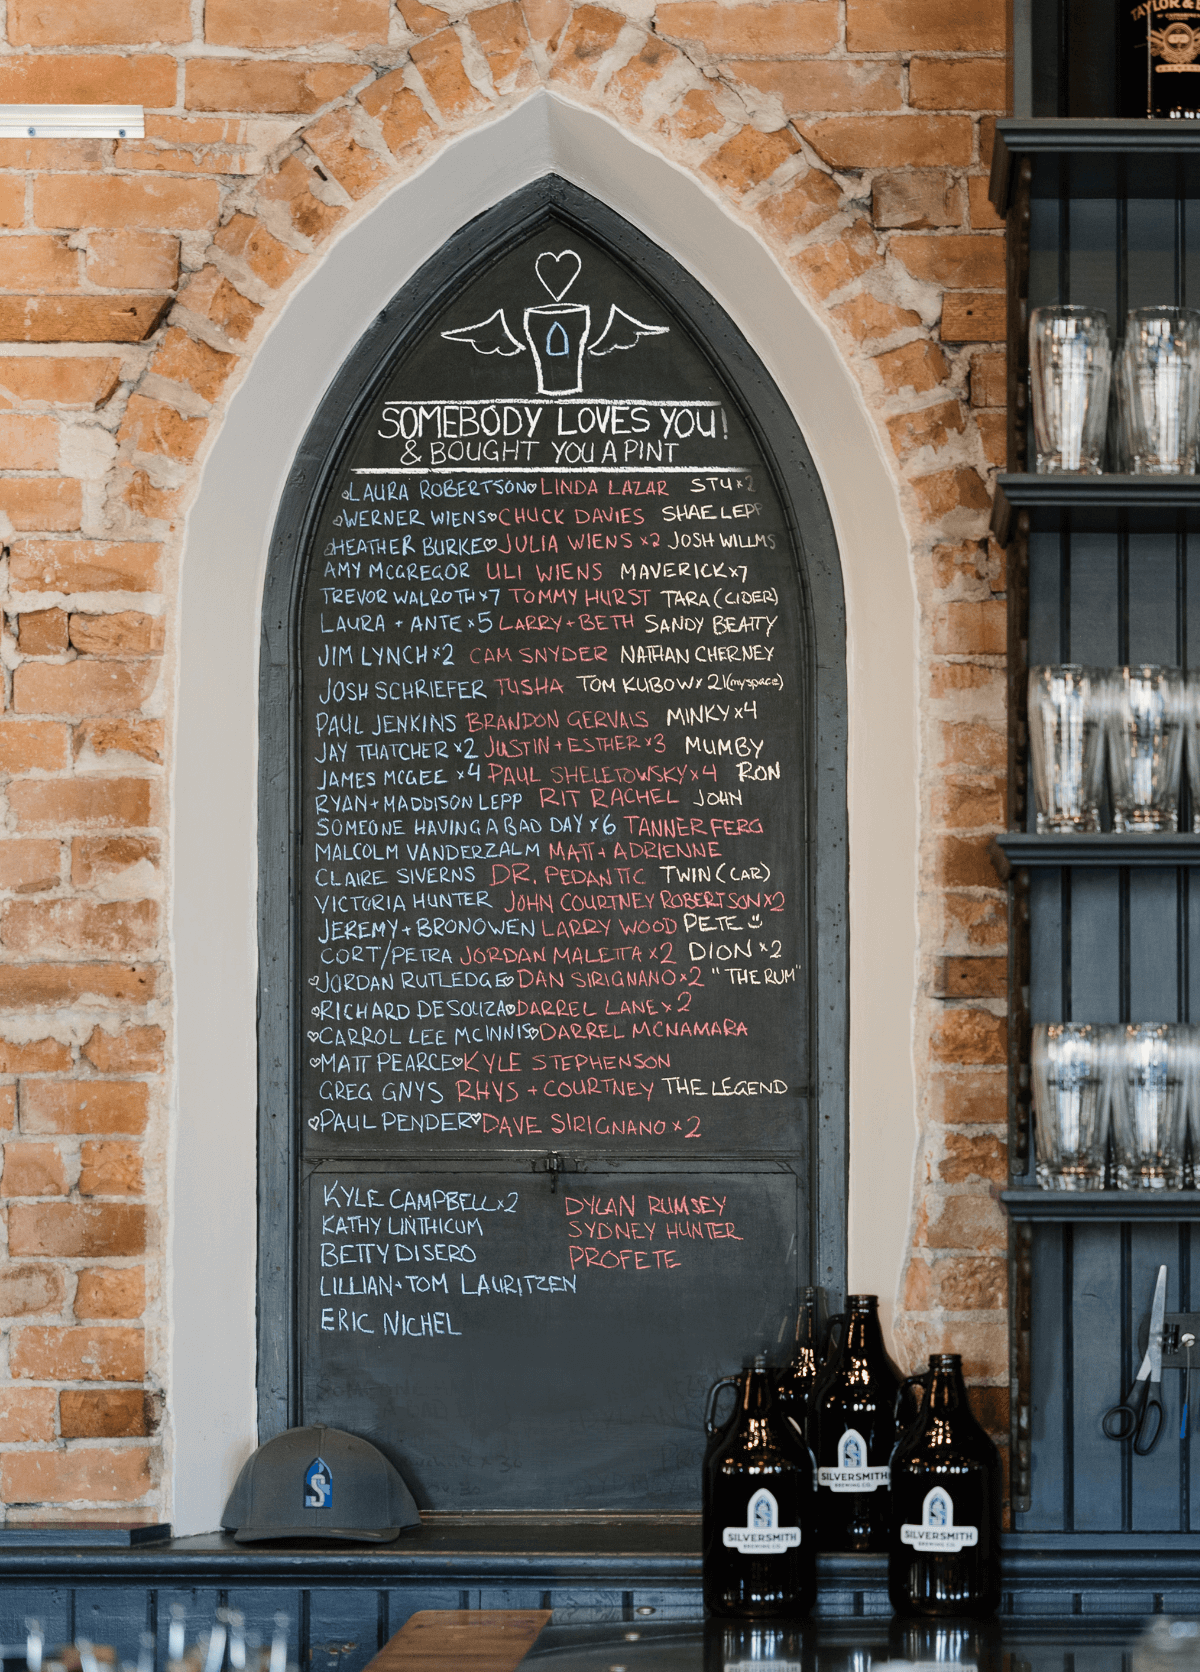 TAYLOR &
SOMEBODY LOVES YOU!
& BOUGHT YOU A PINT
LAURA ROBERTSON LINDA LAZAR STU x2
WERNER WIENS CHUCK DAVIES SHAE LEPP
HEATHER BURKE JULIA WIENS x2 JOSH WILLMS
AMY MCGREGOR ULI WIENS MAVERICK x7
TREVOR WALROTH x7 TOMMY HURST TARA (CIDER)
LAURA + ANTE x5 LARRY + BETH SANDY BEATTY
JIM LYNCH x2 CAM SNYDER NATHAN CHERNEY
JOSH SCHRIEFER TUSHA TOM KUBOW x 21 (myspace)
PAUL JENKINS BRANDON GERVAIS MINKY x4
JAY THATCHER x2 JUSTIN + ESTHER x3 MUMBY
JAMES MCGEE x4 PAUL SHELETOWSKY x4 RON
RYAN + MADDISON LEPP RIT RACHEL JOHN
SOMEONE HAVING A BAD DAY x6 TANNER FERG
MALCOLM VANDERZALM MATT + ADRIENNE
CLAIRE SIVERNS DR. PEDANTIC TWIN (CAR)
VICTORIA HUNTER JOHN COURTNEY ROBERTSON x2
JEREMY + BRONOWEN LARRY WOOD PETE
CORT/PETRA JORDAN MALETTA x2 DION x2
JORDAN RUTLEDGE DAN SIRIGNANO x2 "THE RUM"
RICHARD DESOUZA DARREL LANE x2
CARROL LEE MCINNIS DARREL MCNAMARA
MATT PEARCE KYLE STEPHENSON
GREG GNYS RHYS + COURTNEY THE LEGEND
PAUL PENDER DAVE SIRIGNANO x2
KYLE CAMPBELL x2 DYLAN RUMSEY
KATHY LINTHICUM SYDNEY HUNTER
BETTY DISERO PROFETE
LILLIAN + TOM LAURITZEN
ERIC NICHEL
S
SILVERSMITH
BREWING CO.
SILVERSMITH
BREWING CO.
SILVERSMITH
BREWING CO.